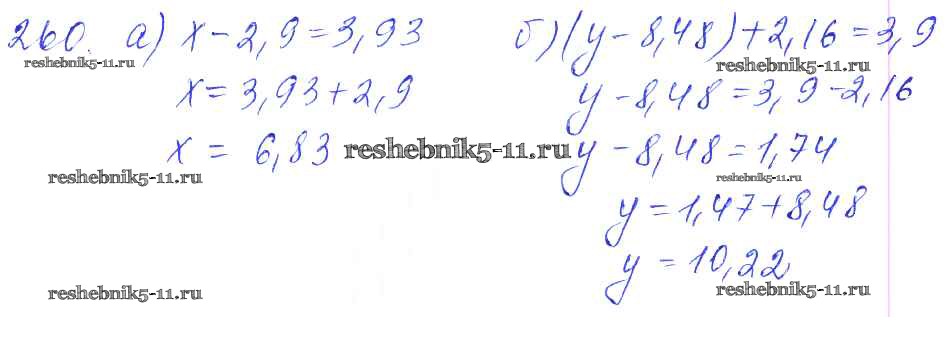 260. а) x - 2,9 = 3,93 б) (y - 8,48) + 2,16 = 3,9
reshebnik5-11.ru reshebnik5-11.ru
x = 3,93 + 2,9 y - 8,48 = 3,9 - 2,16
x = 6,83 reshebnik5-11.ru y - 8,48 = 1,74
reshebnik5-11.ru reshebnik5-11.ru
y = 1,47 + 8,48
y = 10,22
reshebnik5-11.ru reshebnik5-11.ru